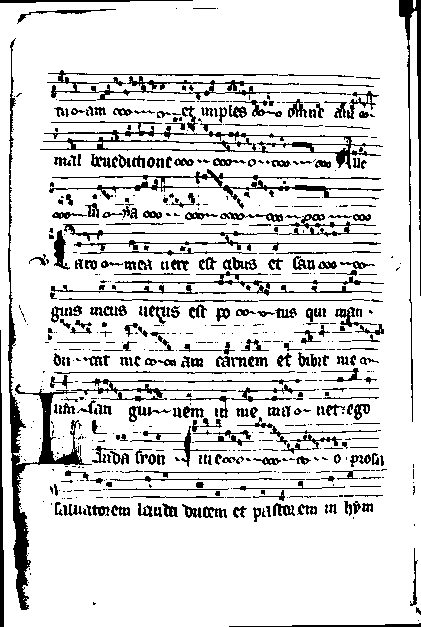 tu-am et imples omne ani
mal benedictione Alle
lu ya
Caro mea vere est cibus et san
guis meus verus est po-tus qui man-
du-cat me-am carnem et bibit me-
um san-gui-nem in me ma-net: ego
Lauda syon in e-o. prosa
salvatorem lauda ducem et pastorem in hym